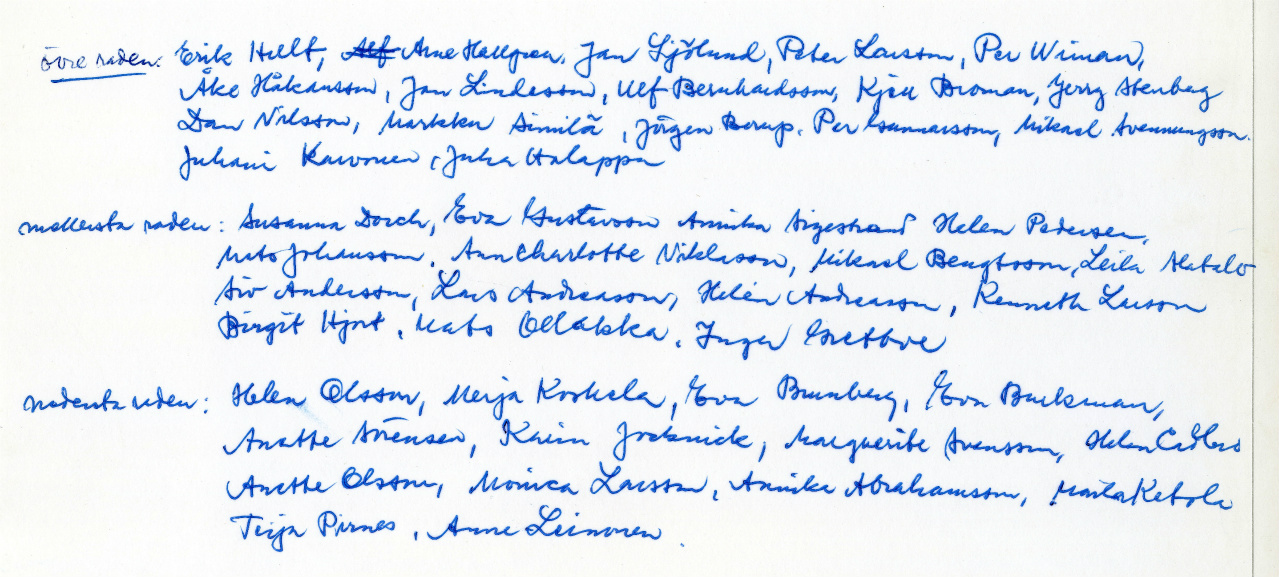 övre raden: Erik Hult, Alf Arne Hallgren, Jan Sjölund, Peter Larsson, Per Wiman,
Åke Håkansson, Jan Lindesson, Ulf Bernhardsson, Kjell Broman, Jerry Stenberg
Dan Nilsson, Markku Similä, Jörgen Borup, Per Gunnarsson, Mikael Svenningsson.
Juhani Karvonen, Juha Halappa
mellersta raden: Susanna Dorch, Eva Gustavsson Annika Sigestrand Helen Pedersen,
Mats Johansson, AnnCharlotte Niklasson, Mikael Bengtsson, Leila
Siv Andersson, Lars Andreasson, Helén Andreasson, Kenneth Larsson
Birgit Hjort, Mats Ollakka, Inger
nedersta raden: Helen Olsson, Merja Koskela, Eva Brunberg, Eva Barkman,
Anette Sörensen, Karin Marguerite Svensson, Helen
Anette Olsson, Monica Larsson, Annika Abrahamsson, Marita Ketola
Teija Pirnes, Anne Leinonen.